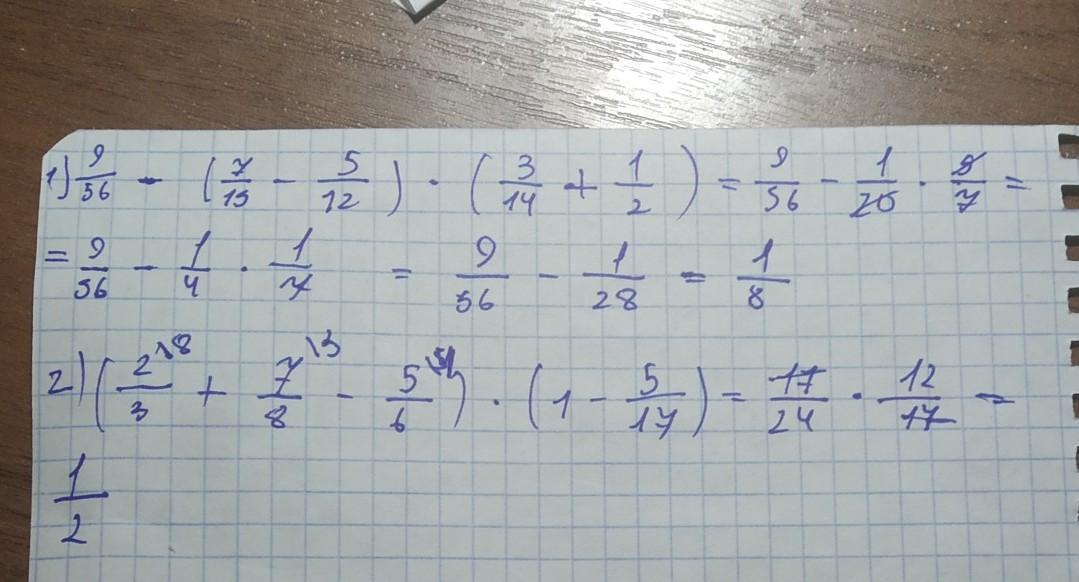 1) 9/56 - (7/15 - 5/12) · (3/14 + 1/2) = 9/56 - 1/20 · 5/7 =
= 9/56 - 1/4 · 1/7 = 9/56 - 1/28 = 1/8
2) (2\8/3 + 7\3/8 - 5\4/6) · (1 - 5/17) = 17/24 · 12/17 =
1/2